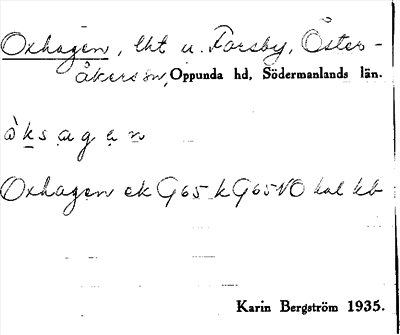 Oxhagen, lht u. Forsby, Öster-
åkers sn, Oppunda hd, Södermanlands län.
ò̀ksagen
Oxhagen ek G65 k G65 NO hal kb
Karin Bergström 1935.